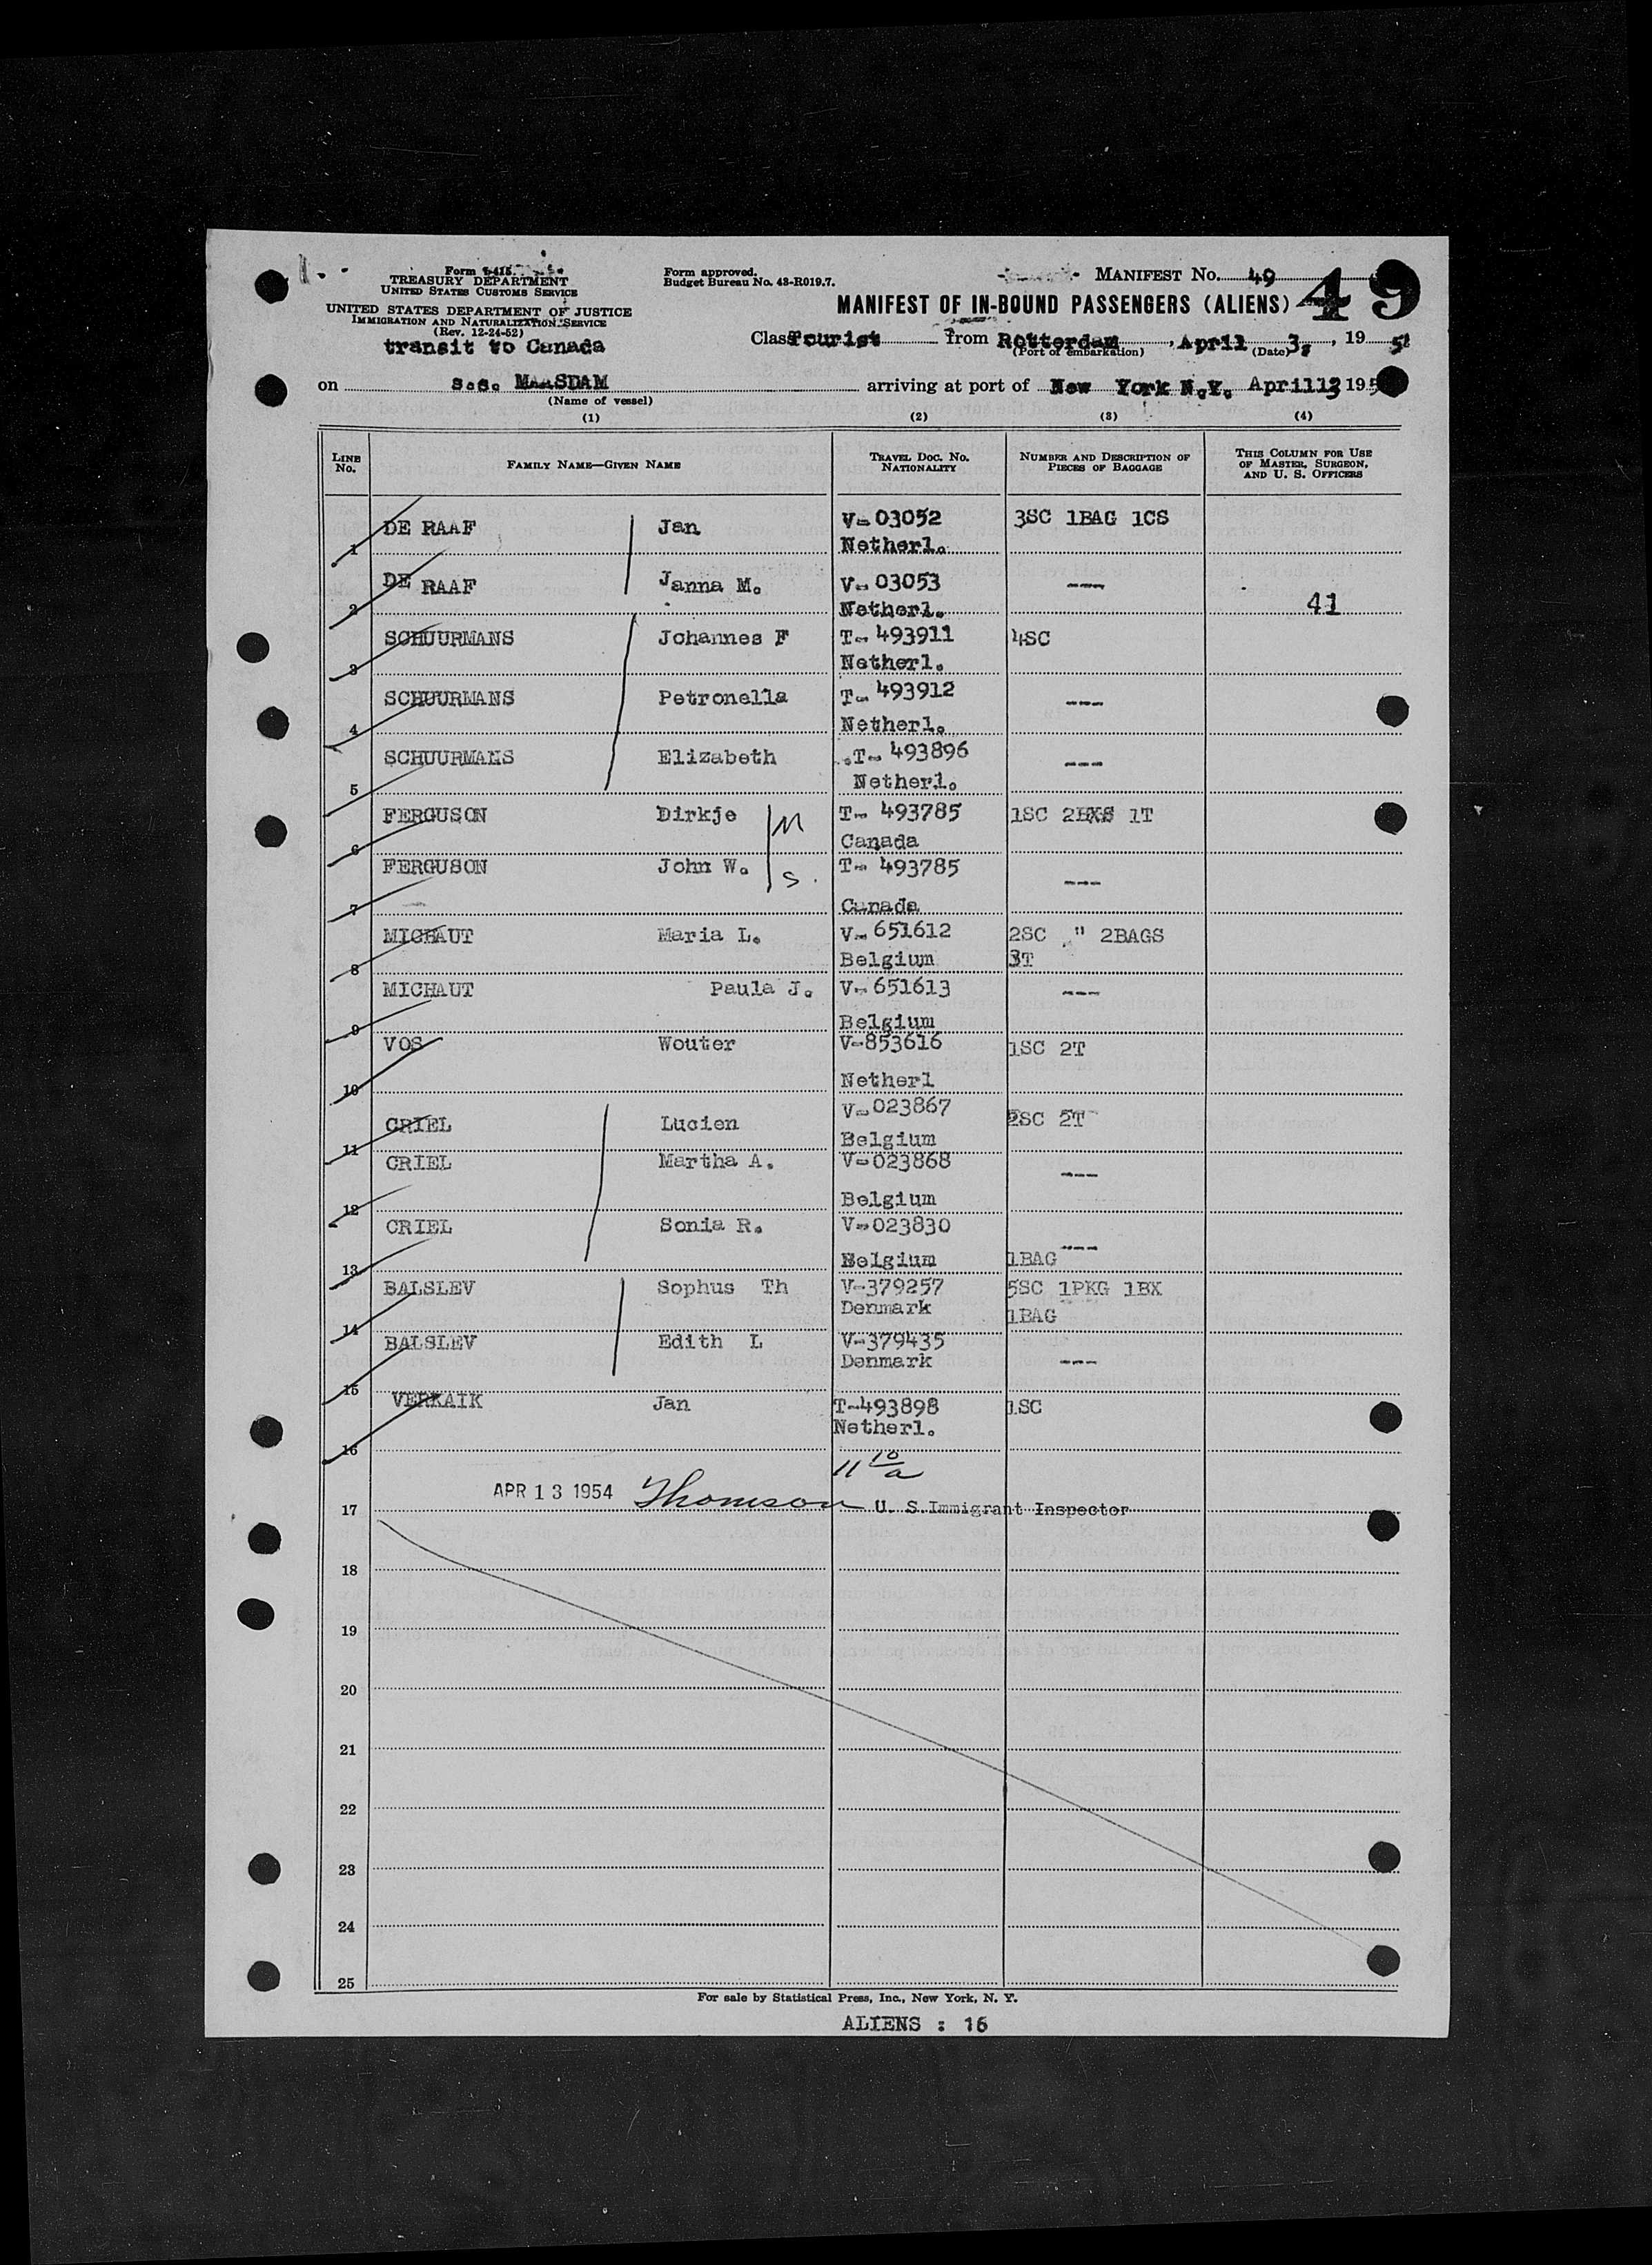 Form I-415
TREASURY DEPARTMENT
UNITED STATES CUSTOMS SERVICE
UNITED STATES DEPARTMENT OF JUSTICE
IMMIGRATION AND NATURALIZATION SERVICE
(Rev. 12-24-52)
transit to Canada
Form approved.
Budget Bureau No. 43-R019.7.
MANIFEST No. 49
49
MANIFEST OF IN-BOUND PASSENGERS (ALIENS)
Class Tourist from Rotterdam, April 3, 195
(Port of embarkation) (Date)
on s.s. MAASDAM arriving at port of New York N.Y. April 13 195
(Name of vessel)
(1) (2) (3) (4)
LINE No. FAMILY NAME—GIVEN NAME TRAVEL DOC. No. NATIONALITY NUMBER AND DESCRIPTION OF PIECES OF BAGGAGE THIS COLUMN FOR USE OF MASTER, SURGEON, AND U. S. OFFICERS
DE RAAF Jan V-03052 3SC 1BAG 1CS
1 Netherl.
DE RAAF Janna M. V-03053 ---
2 Netherl. 41
SCHUURMANS Johannes F T-493911 4SC
3 Netherl.
SCHUURMANS Petronella T-493912 ---
4 Netherl.
SCHUURMANS Elizabeth T-493896 ---
5 Netherl.
FERGUSON Dirkje M T-493785 1SC 2BXS 1T
6 Canada
FERGUSON John W. S. T-493785 ---
7 Canada
MICHAUT Maria L. V-651612 2SC " 2BAGS
8 Belgium 3T
MICHAUT Paula J. V-651613 ---
9 Belgium
VOS Wouter V-853616 1SC 2T
10 Netherl
CRIEL Lucien V-023867 2SC 2T
11 Belgium
CRIEL Martha A. V-023868 ---
12 Belgium
CRIEL Sonia R. V-023830 ---
13 Belgium 1BAG
BALSLEV Sophus Th V-379257 5SC 1PKG 1BX
14 Denmark 1BAG
BALSLEV Edith L V-379435
15 Denmark ---
VERKAIK Jan T-493898 1SC
16 Netherl.
11 10/a
17 APR 13 1954 Thomson U. S. Immigrant Inspector
18
19
20
21
22
23
24
25
For sale by Statistical Press, Inc., New York, N. Y.
ALIENS : 16